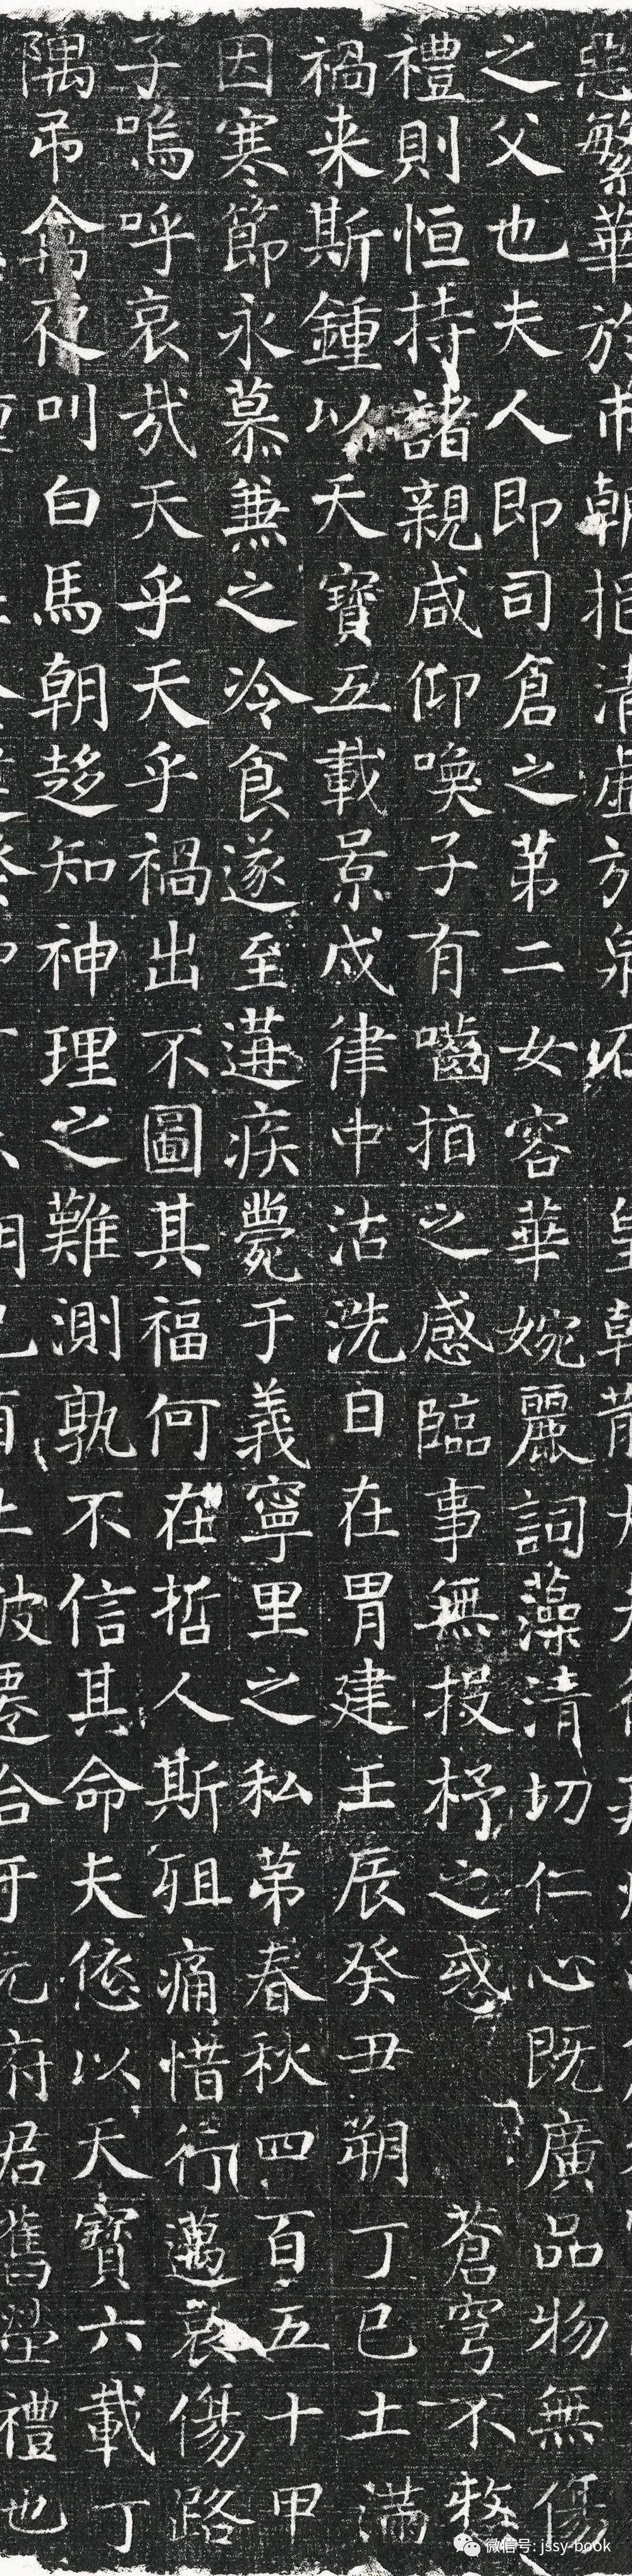 繁華於市朝挹清虛於泉石
之父也夫人即司倉之苐二女容華婉麗詞藻清切仁心既廣品物無傷
禮則恒持諸親咸仰喚子有嚙指之感臨事無投杼之惑 蒼穹不
禍来斯鍾以天寶五載景戌律中沽洗日在胃建壬辰癸丑朔丁巳土滿
因寒節永慕兼之冷食遂至遘疾薨于義寧里之私苐春秋四百五十甲
子嗚呼哀哉天乎天乎禍出不圖其福何在哲人斯殂痛惜行邁哀傷路
隅吊禽夜叫白馬朝趍知神理之難測孰不信其命夫以天寶六載丁
府君舊塋禮也
微信号: jssy-book